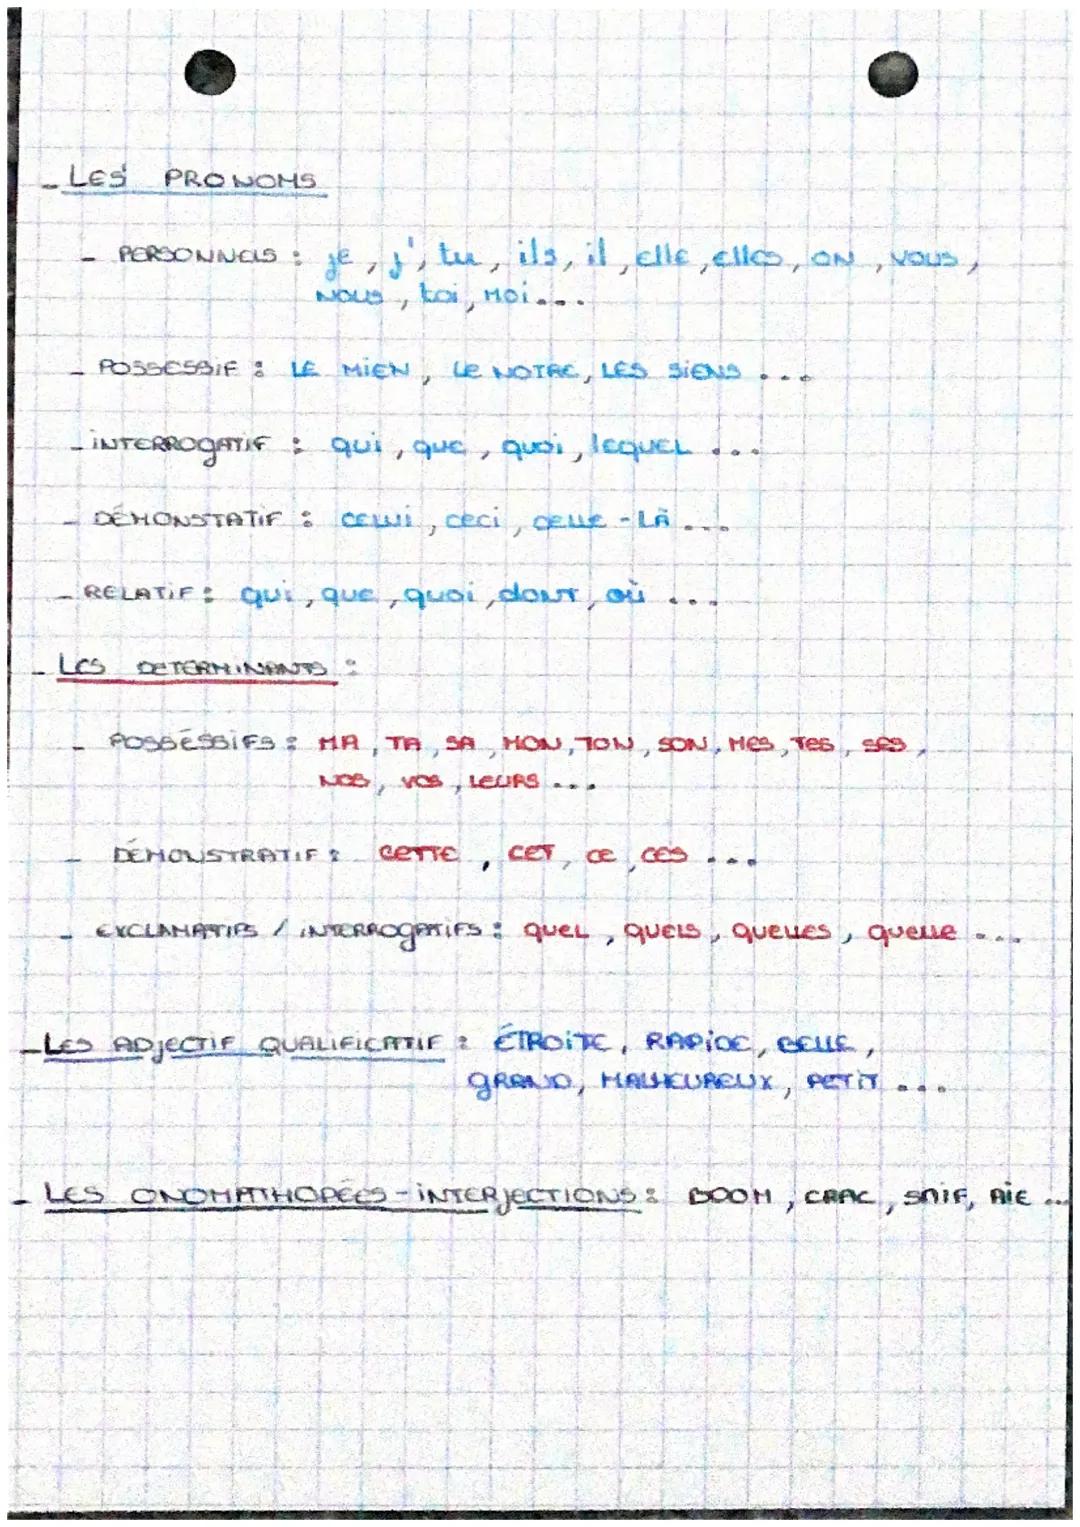 - LES PRONOMS
- PERSONNELS : je, j', tu, ils, il, elle, elles, ON, VOUS,
NOUS, toi, MOi...
- POSSESSIF : LE MIEN, LE NOTRE, LES SIENS ...
- INTERROGATIF : qui, que, quoi, lequel ...
- DÉMONSTATIF : CELUI, CECI, CELLE - LÀ ...
- RELATIF : qui, que, quoi, dont, où ...
- LES DETERMINANTS :
- POSSÉSSIFS : MA, TA, SA, MON, TON, SON, MES, TES, SES,
NOS, VOS, LEURS ...
- DÉMONSTRATIF : CETTE, CET, CE, CES ...
- EXCLAMATIFS / INTERROGATIFS : QUEL, QUELS, QUELLES, QUELLE ...
- LES ADJECTIF QUALIFICATIF : ÉTROITE, RAPIDE, BELLE,
GRAND, MALHEUREUX, PETIT ...
- LES ONOMATHOPÉES - INTERJECTIONS : BOOM, CRAC, SNIF, AIE ...